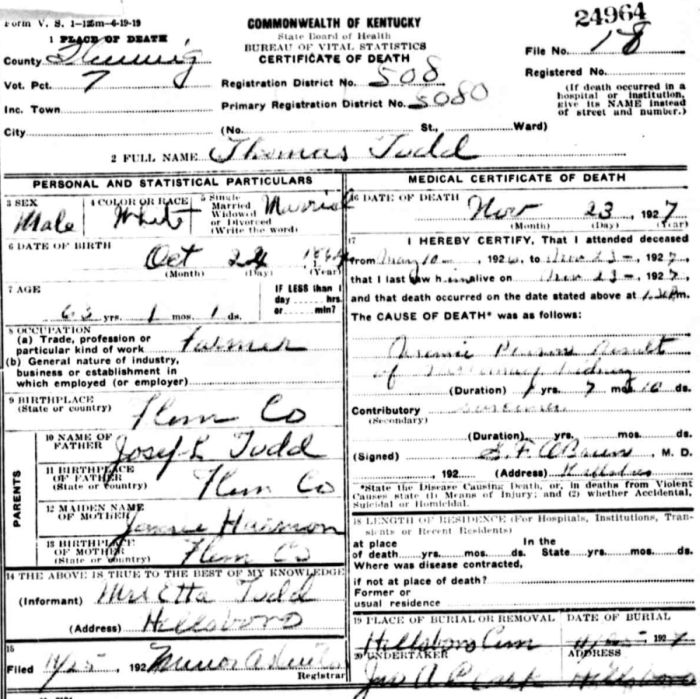 Form V. S. 1-125m-6-19-19
24964
1 PLACE OF DEATH
COMMONWEALTH OF KENTUCKY
State Board of Health
BUREAU OF VITAL STATISTICS
CERTIFICATE OF DEATH
County Fleming
File No. 18
Vot. Pct. 7
Registration District No. 508
Registered No.
Inc. Town
Primary Registration District No. 5080
(If death occurred in a hospital or institution, give its NAME instead of street and number.)
City (No. St., Ward)
2 FULL NAME Thomas Todd
PERSONAL AND STATISTICAL PARTICULARS
3 SEX Male
4 COLOR OR RACE White
5 Single Married Widowed or Divorced (Write the word) Married
6 DATE OF BIRTH
Oct 22 1864
(Month) (Day) (Year)
7 AGE
63 yrs. 1 mos. 1 ds.
IF LESS than 1 day hrs. or min?
8 OCCUPATION
(a) Trade, profession or particular kind of work Farmer
(b) General nature of industry, business or establishment in which employed (or employer)
9 BIRTHPLACE
(State or country) Flem Co
PARENTS
10 NAME OF FATHER Joseph Todd
11 BIRTHPLACE OF FATHER
(State or country) Flem Co
12 MAIDEN NAME OF MOTHER
13 BIRTHPLACE OF MOTHER
(State or country) Flem Co
14 THE ABOVE IS TRUE TO THE BEST OF MY KNOWLEDGE
(Informant) Mrs Etta Todd
(Address) Hillsboro
15
Filed 11/25 192 Registrar
MEDICAL CERTIFICATE OF DEATH
16 DATE OF DEATH
Nov 23 1927
(Month) (Day) (Year)
17 I HEREBY CERTIFY, That I attended deceased
from May 10 1926, to Nov 23 1927,
that I last saw him alive on Nov 23 1927,
and that death occurred on the date stated above at m.
The CAUSE OF DEATH* was as follows:
Uremic Poison Result
of Kidney
(Duration) 1 yrs. 7 mos. 10 ds.
Contributory
(Secondary)
(Duration) yrs. mos. ds.
(Signed) O'Brien, M. D.
, 192 (Address) Hillsboro
*State the Disease Causing Death, or, in deaths from Violent Causes state (1) Means of Injury; and (2) whether Accidental, Suicidal or Homicidal.
18 LENGTH OF RESIDENCE (For Hospitals, Institutions, Transients or Recent Residents)
at place of death yrs. mos. ds. In the State yrs. mos. ds.
Where was disease contracted,
if not at place of death?
Former or
usual residence
19 PLACE OF BURIAL OR REMOVAL
DATE OF BURIAL
Hillsboro Cem 11/25 1927
20 UNDERTAKER
ADDRESS
Jas A Clark Hillsboro